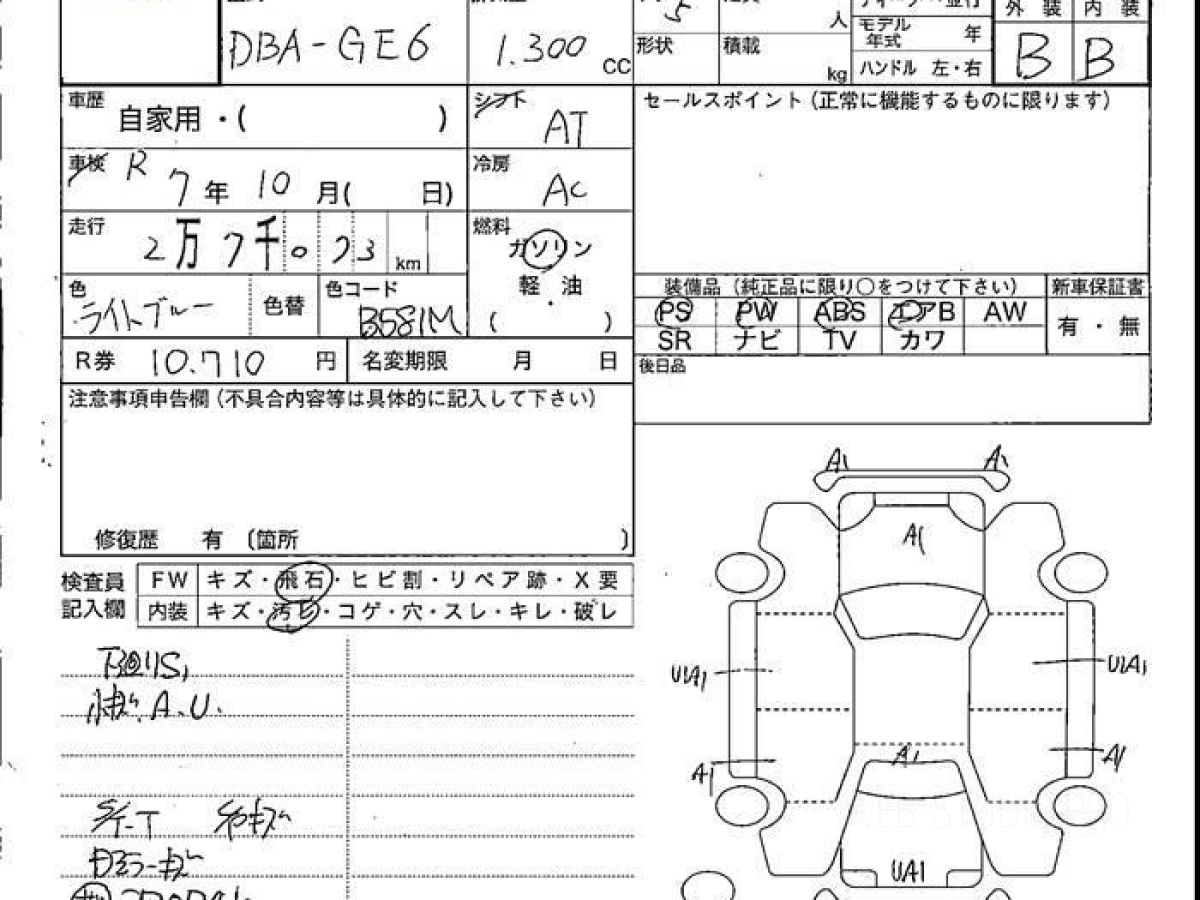 DBA-GE6
1.300 CC
5
人
形状 積載 kg
モデル年式 年
ハンドル 左・右
外装 内装
B B
車歴 自家用・( )
シフト AT
セールスポイント(正常に機能するものに限ります)
車検 R 7年 10月( 日)
冷房 AC
走行 2万7千073 km
燃料 ガソリン
軽・油
( )
色 ライトブルー 色替 色コード B581M
装備品(純正品に限り○をつけて下さい) 新車保証書
PS PW ABS エアB AW 有・無
SR ナビ TV カワ
R券 10.710 円 名変期限 月 日
後日品
注意事項申告欄(不具合内容等は具体的に記入して下さい)
修復歴 有 〔箇所 〕
検査員記入欄
FW キズ・飛石・ヒビ割・リペア跡・X要
内装 キズ・汚レ・コゲ・穴・スレ・キレ・破レ
A1 A1
A1
U1A1 U1A1
A1 A1 A1
UA1
A.U.